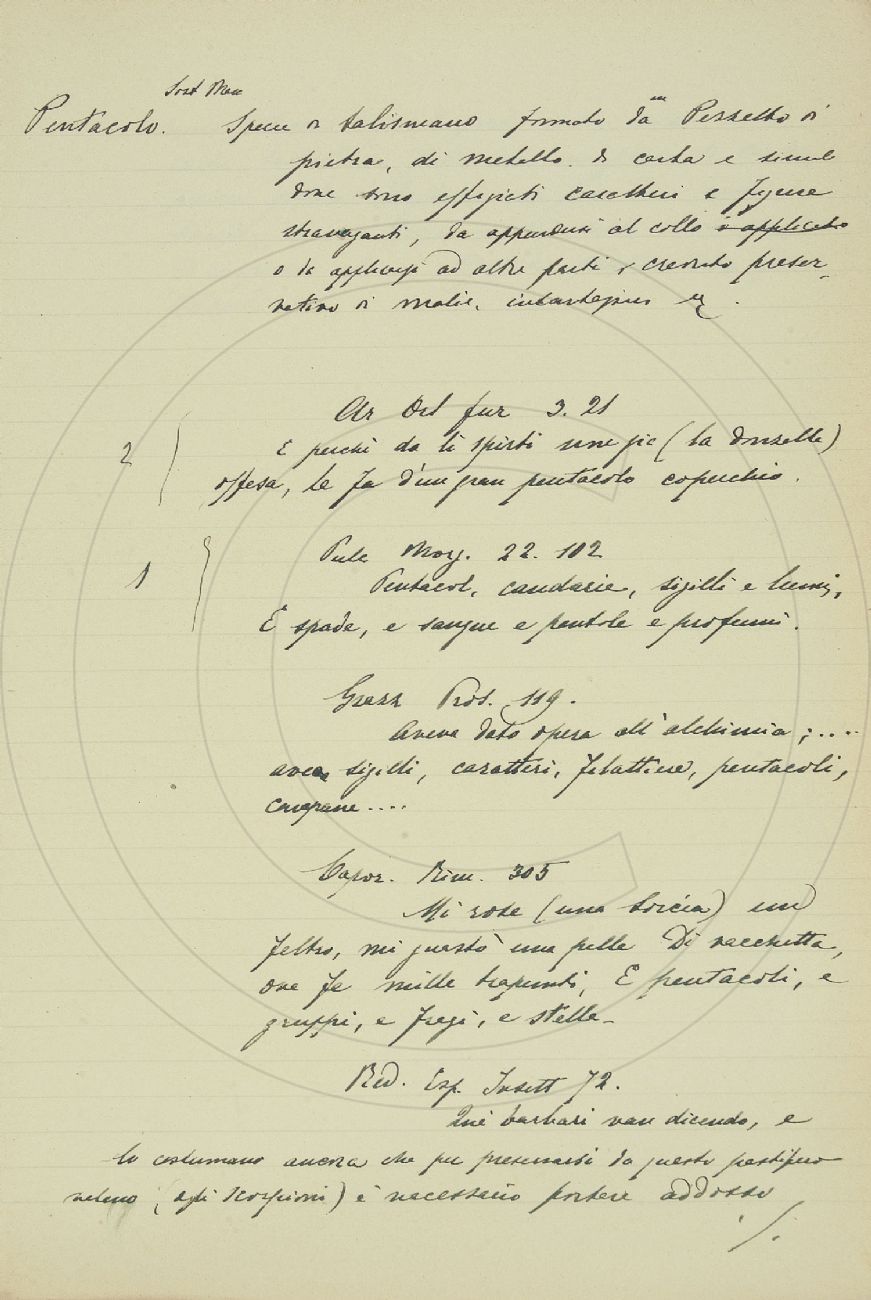 Sost Mas
Pentacolo. Specie di talismano formato da un Pezzetto di
pietra, di metallo, di carta e simil
dove sono effigiati caratteri e figure
stravaganti, da appendersi al collo o applicarlo
o da applicarsi ad altre parti, creduto preser-
vativo di malie,
Ar Orl fur 3. 21
2 E perchè da li spirti non sie (la donzella)
offesa, Le fa d'un gran pentacolo coperchio.
Pulc Morg. 22. 102
1 Pentacol, candarie, sigilli e lumi,
E spade, e sangue e pentole e profumi.
Grazz Pros. 119.
Aveva dato opera all'alchimia; ....
avea sigilli, caratteri, filattiere, pentacoli,
campane ....
Capor. Rim. 305
Mi rose (una sorcia) un
feltro, mi guastò una pelle Di vacchetta,
ove fe mille trapunti, E pentacoli, e
gruppi, e fregi, e stelle_
Red. Esp. Insett 72.
Quei barbari van dicendo, e
lo costumano ancora che per preservarsi da questo pestifero
veleno (degli scorpioni) è necessario portare addosso
./.